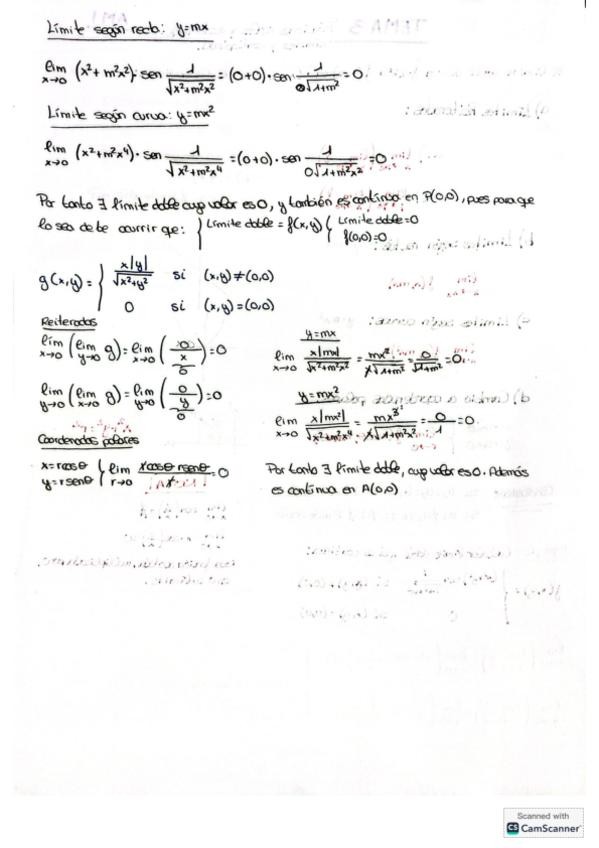 Límite según recta: y=mx
lim x→0 (x²+m²x²)·sen 1/√(x²+m²x²) = (0+0)·sen 1/(0√(1+m²)) = 0
Límite según curva: y=mx²
lim x→0 (x²+m²x⁴)·sen 1/√(x²+m²x⁴) = (0+0)·sen 1/(0√(1+m²x²)) = 0
Por tanto ∃ límite doble cuyo valor es 0, y también es continua en P(0,0), pues para que
lo sea debe ocurrir que: { Límite doble = f(x,y) { Límite doble=0
f(0,0)=0
g(x,y) = { x|y|/√(x²+y²) si (x,y)≠(0,0)
0 si (x,y)=(0,0)
Reiterados
lim x→0 (lim y→0 g) = lim x→0 (0/x) = 0
0
lim y→0 (lim x→0 g) = lim y→0 (0/y) = 0
0
y=mx
lim x→0 x|mx|/√(x²+m²x²) = mx²/(x√(1+m²)) = 0/√(1+m²) = 0
y=mx²
lim x→0 x|mx²|/√(x²+m²x⁴) = mx³/(x√(1+m²x²)) = 0/1 = 0
Coordenadas polares
x=rcosθ
y=rsenθ { lim r→0 rcosθ rsenθ/r = 0
Por tanto ∃ límite doble, cuyo valor es 0. Además
es continua en A(0,0)
Scanned with
CS CamScanner